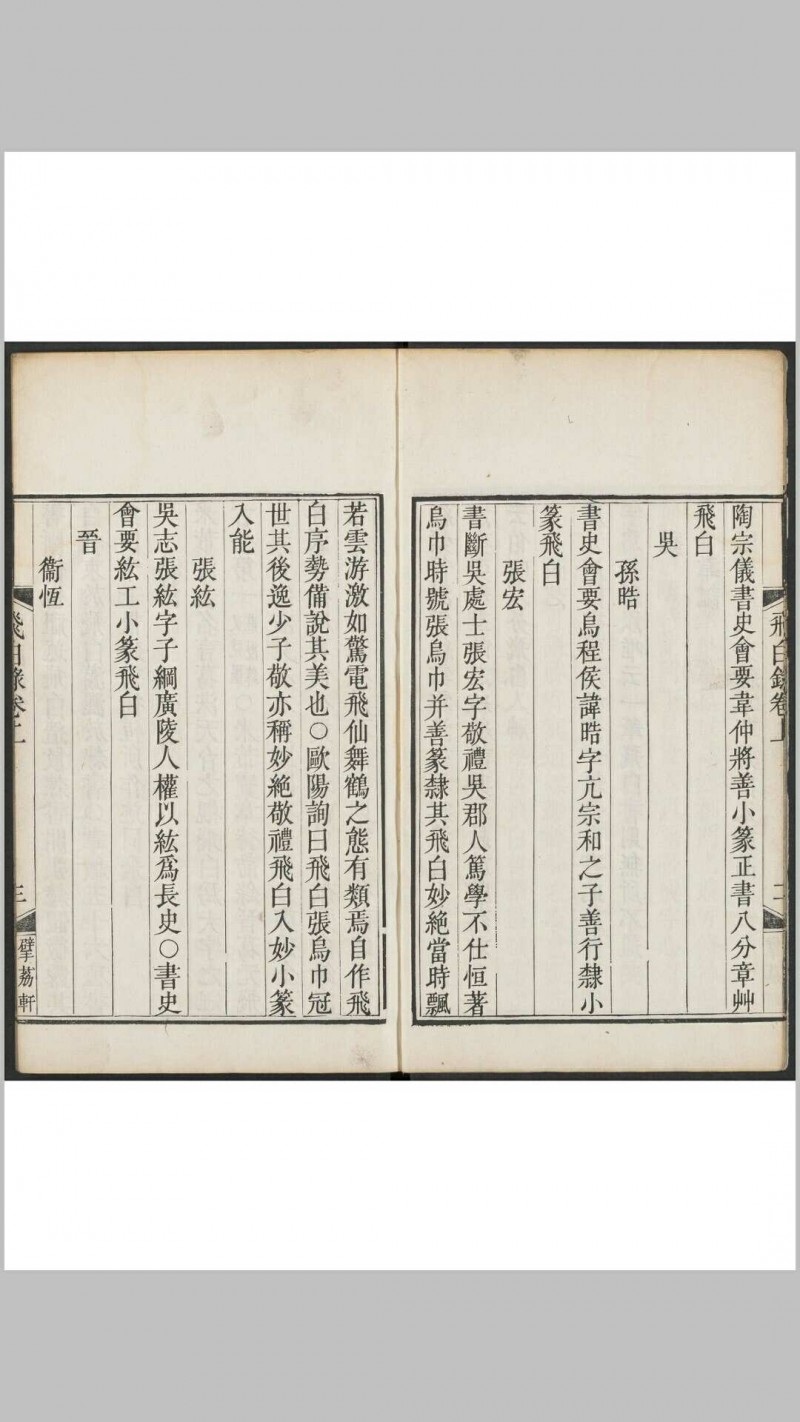 飛白錄卷上
二
陶宗儀書史會要韋仲將善小篆正書八分章艸
飛白
吳
孫晧
書史會要烏程侯諱晧字亢宗和之子善行隸小
篆飛白
張宏
書斷吳處士張宏字敬禮吳郡人篤學不仕恒著
烏巾時號張烏巾并善篆隸其飛白妙絕當時飄
若雲游激如驚電飛仙舞鶴之態有類焉自作飛
白序勢備說其美也○歐陽詢曰飛白張烏巾冠
世其後逸少子敬亦稱妙絕敬禮飛白入妙小篆
入能
張紘
吳志張紘字子綱廣陵人權以紘爲長史○書史
會要紘工小篆飛白
晉
衞恆
飛白錄卷上
三
擘荔軒